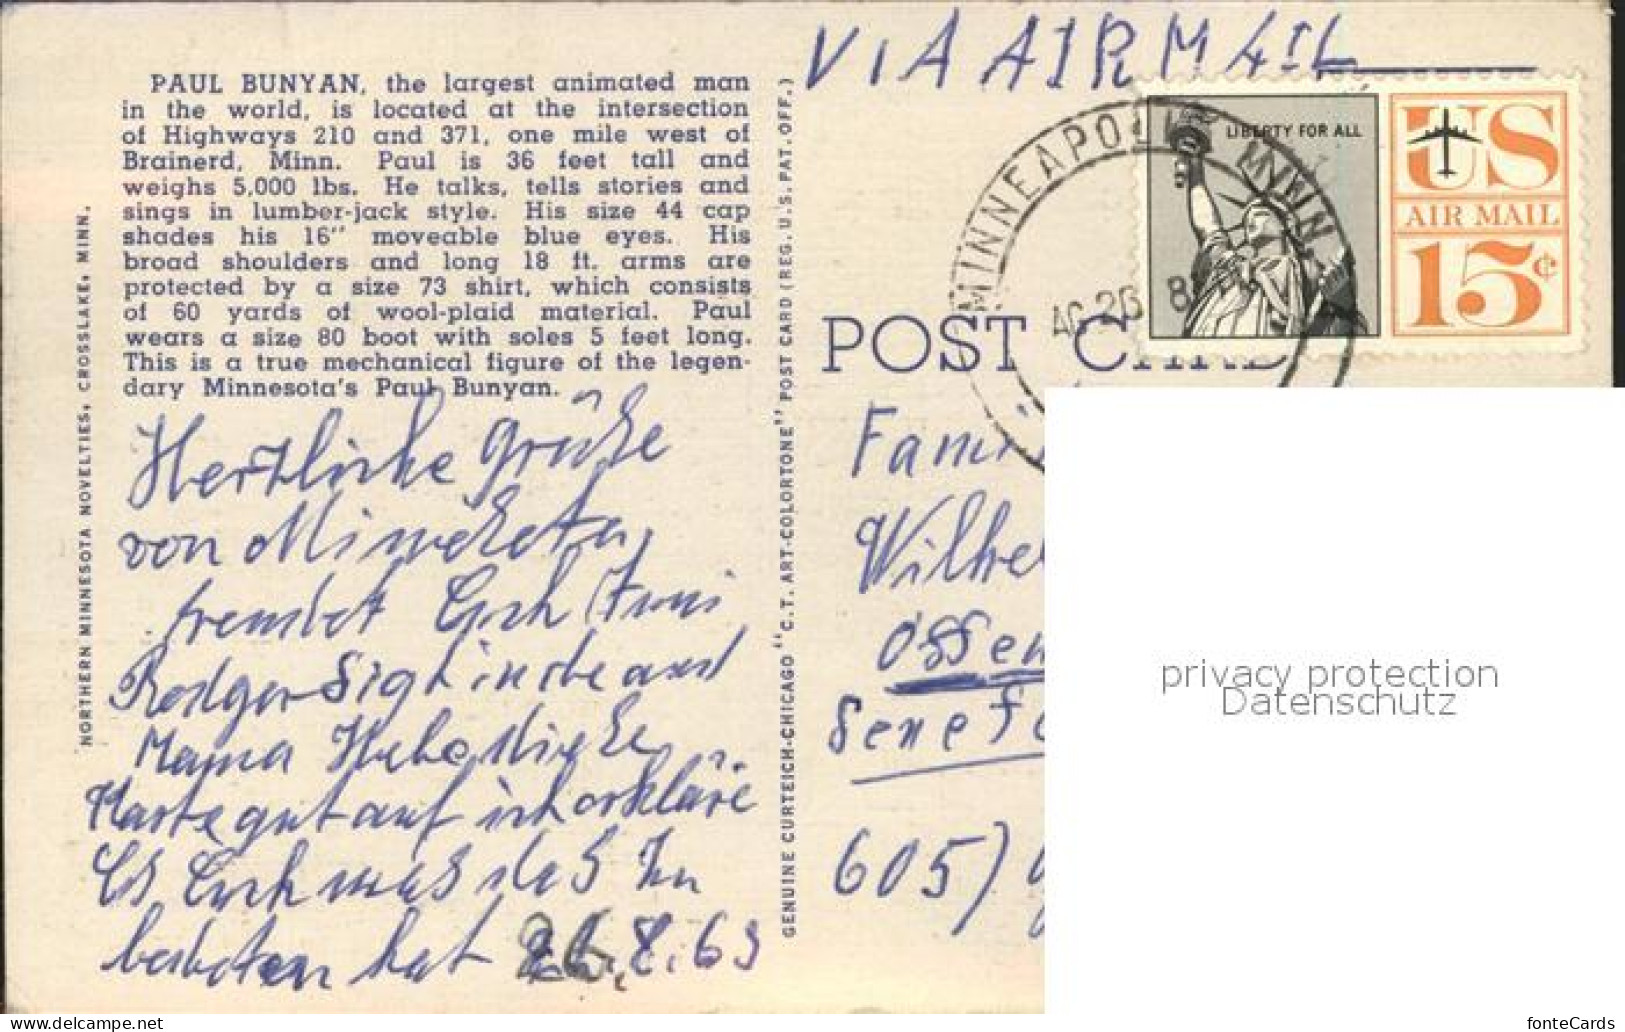 VIA AIR MAIL
PAUL BUNYAN, the largest animated man
in the world, is located at the intersection
of Highways 210 and 371, one mile west of
Brainerd, Minn. Paul is 36 feet tall and
weighs 5,000 lbs. He talks, tells stories and
sings in lumber-jack style. His size 44 cap
shades his 16" moveable blue eyes. His
broad shoulders and long 18 ft. arms are
protected by a size 73 shirt, which consists
of 60 yards of wool-plaid material. Paul
wears a size 80 boot with soles 5 feet long.
This is a true mechanical figure of the legen-
dary Minnesota's Paul Bunyan.
Hertzliche Grüße
von Minnesota,
sendet Euch
und
Mama Hebe diese
Karte gut auf ich erkläre
Es Euch was das zu
bedeuten hat 26.8.63
NORTHERN MINNESOTA NOVELTIES, CROSSLAKE, MINN.
GENUINE CURTEICH-CHICAGO "C.T. ART-COLORTONE" POST CARD (REG. U.S. PAT. OFF.)
MINNEAPOLIS MINN
LIBERTY FOR ALL
US
AIR MAIL
15¢
POST CARD
Fami
Wilhe
Ossen
Senefe
605)
privacy protection
Datenschutz
www.delcampe.net
fonteCards